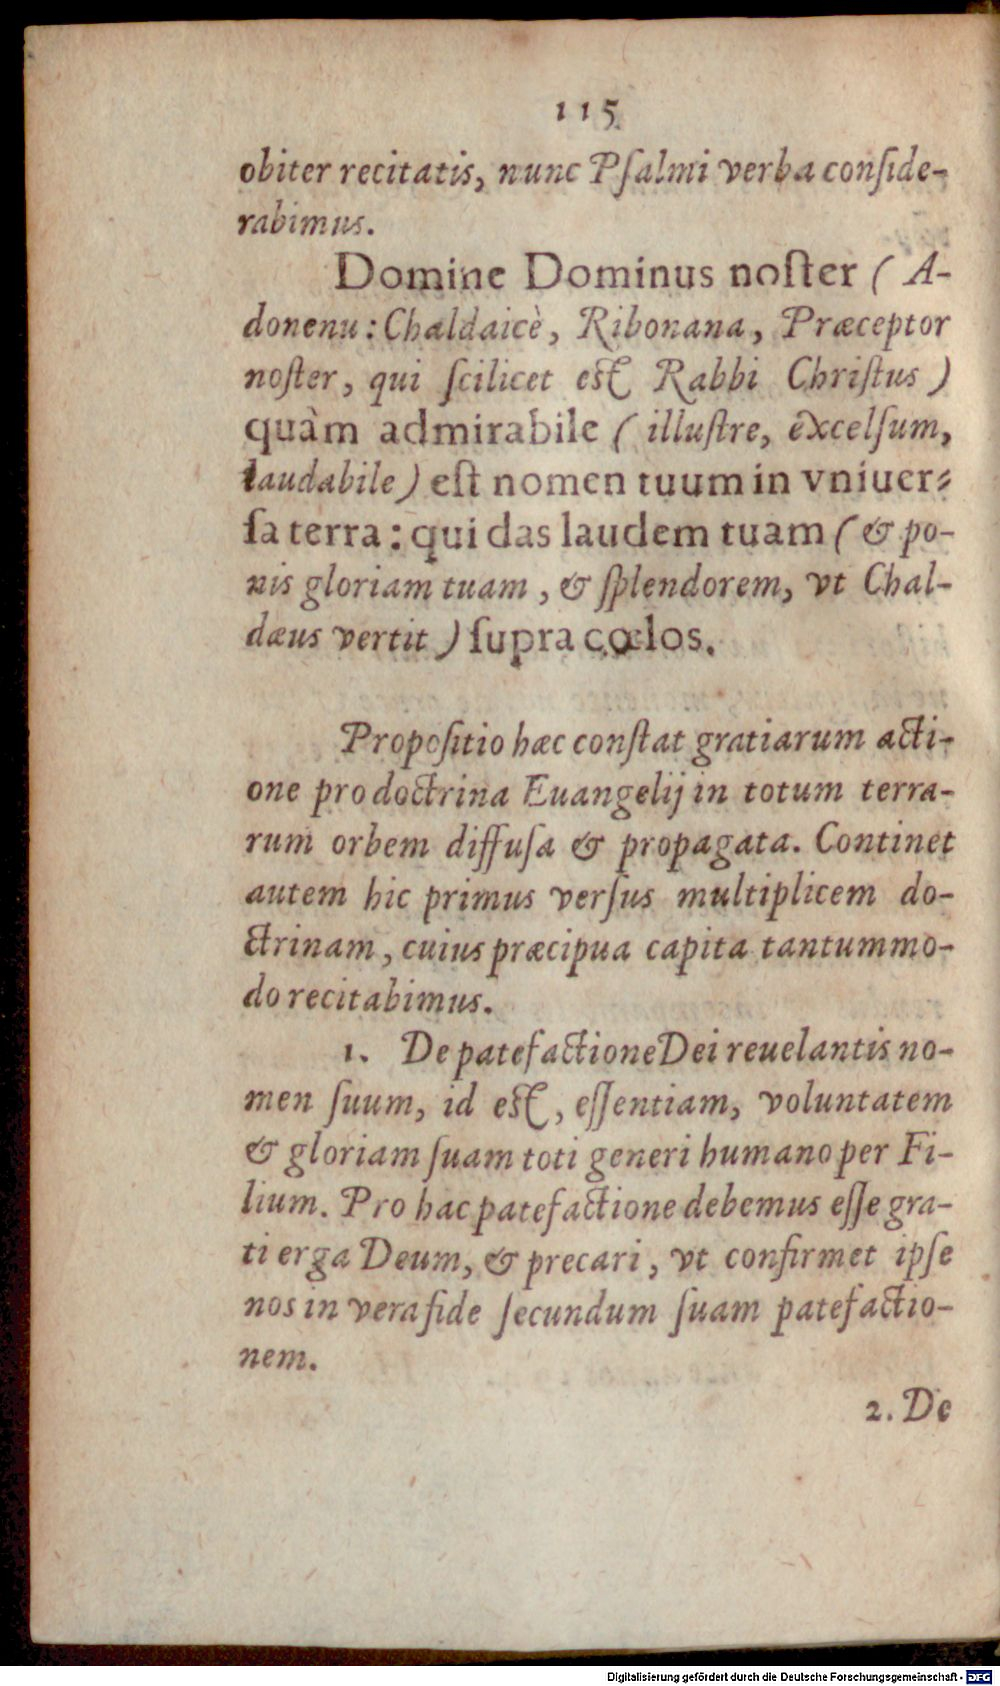 115
obiter recitatis, nunc Pſalmi verba conſide-
rabimus.
Domine Dominus noſter ( A-
donenu : Chaldaicè, Ribonana, Præceptor
noſter, qui ſcilicet eſt Rabbi Chriſtus )
quàm admirabile ( illuſtre, excelſum,
laudabile ) eſt nomen tuum in vniuer-
ſa terra : qui das laudem tuam ( & po-
nis gloriam tuam, & ſplendorem, vt Chal-
dæus vertit ) ſupra cœlos.
Propoſitio hæc conſtat gratiarum acti-
one pro doctrina Euangelij in totum terra-
rum orbem diffuſa & propagata. Continet
autem hic primus verſus multiplicem do-
ctrinam, cuius præcipua capita tantummo-
do recitabimus.
1. De patefactione Dei reuelantis no-
men ſuum, id eſt, eſſentiam, voluntatem
& gloriam ſuam toti generi humano per Fi-
lium. Pro hac patefactione debemus eſſe gra-
ti erga Deum, & precari, vt confirmet ipſe
nos in vera fide ſecundum ſuam patefactio-
nem.
2. De
Digitalisierung gefördert durch die Deutsche Forschungsgemeinschaft - DFG